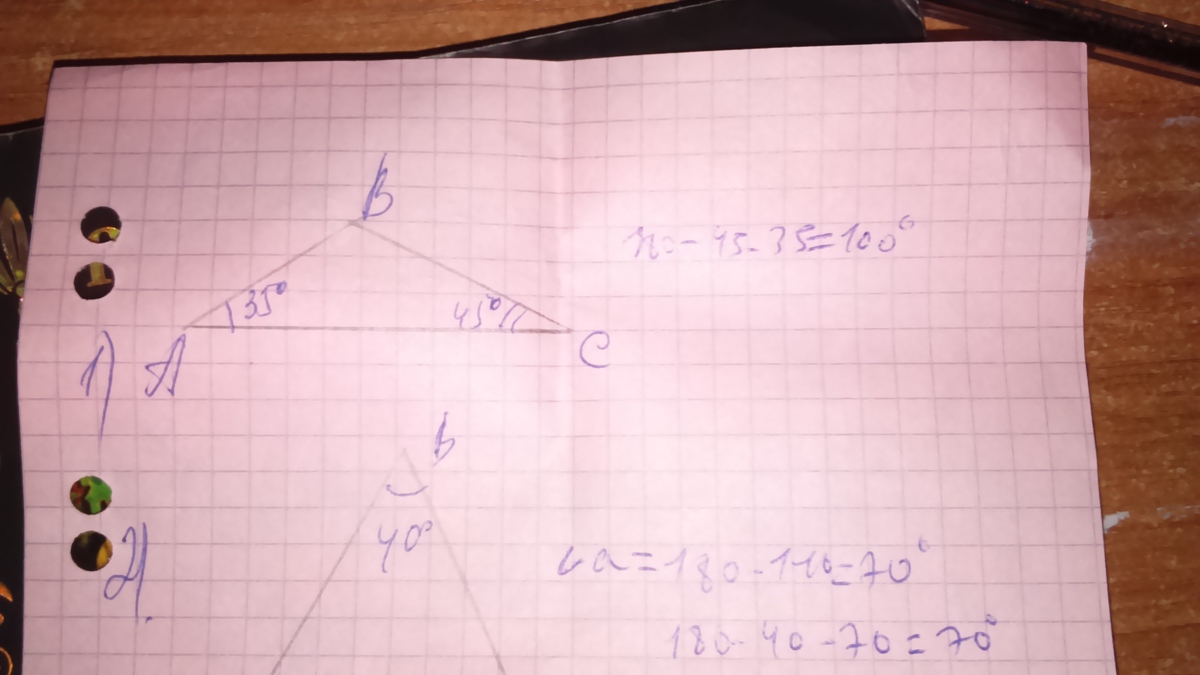 B
180-45-35=100°
35°
45°
1)
A
C
B
40°
2).
∠a=180-110=70°
180-40-70=70°